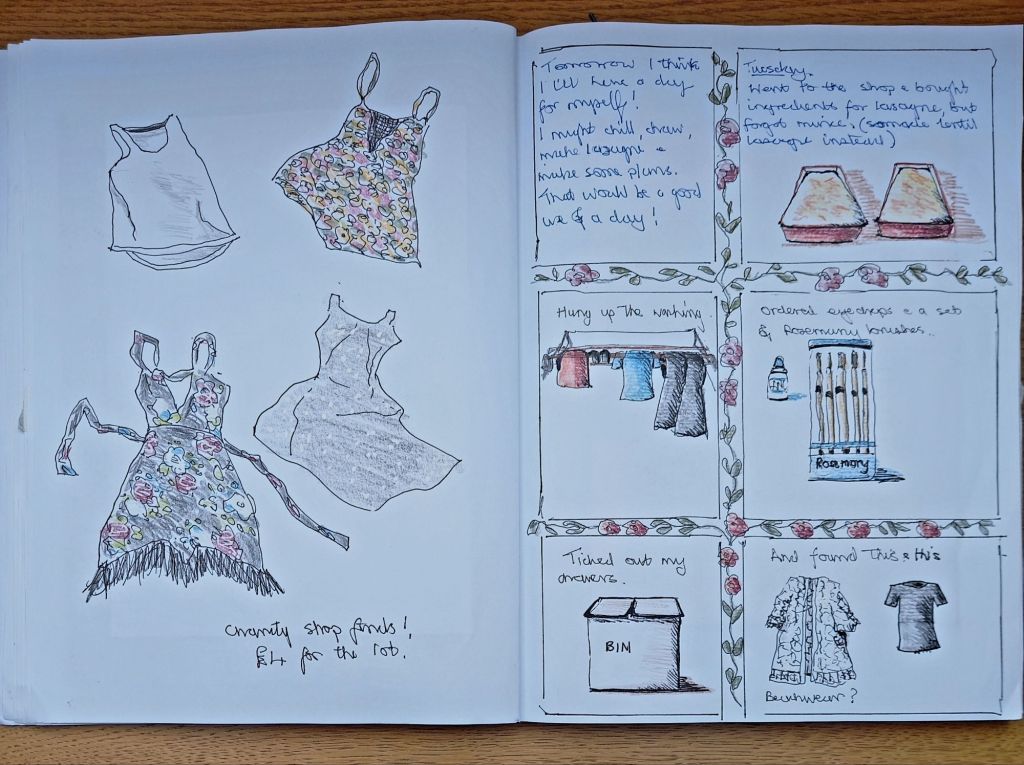 charity shop finds!
£4 for the lot.
Tomorrow I think
I'll have a day
for myself!
I might chill, draw,
make lasagne &
make some plans.
That would be a good
use of a day!
Tuesday.
Went to the shop & bought
ingredients for lasagne, but
forgot mince. (so made lentil
lasagne instead)
Hung up the washing.
Ordered eyedrops & a set
of Rosemary brushes.
Rosemary
Tidied out my
drawers.
BIN
And found This & this
Beachwear?